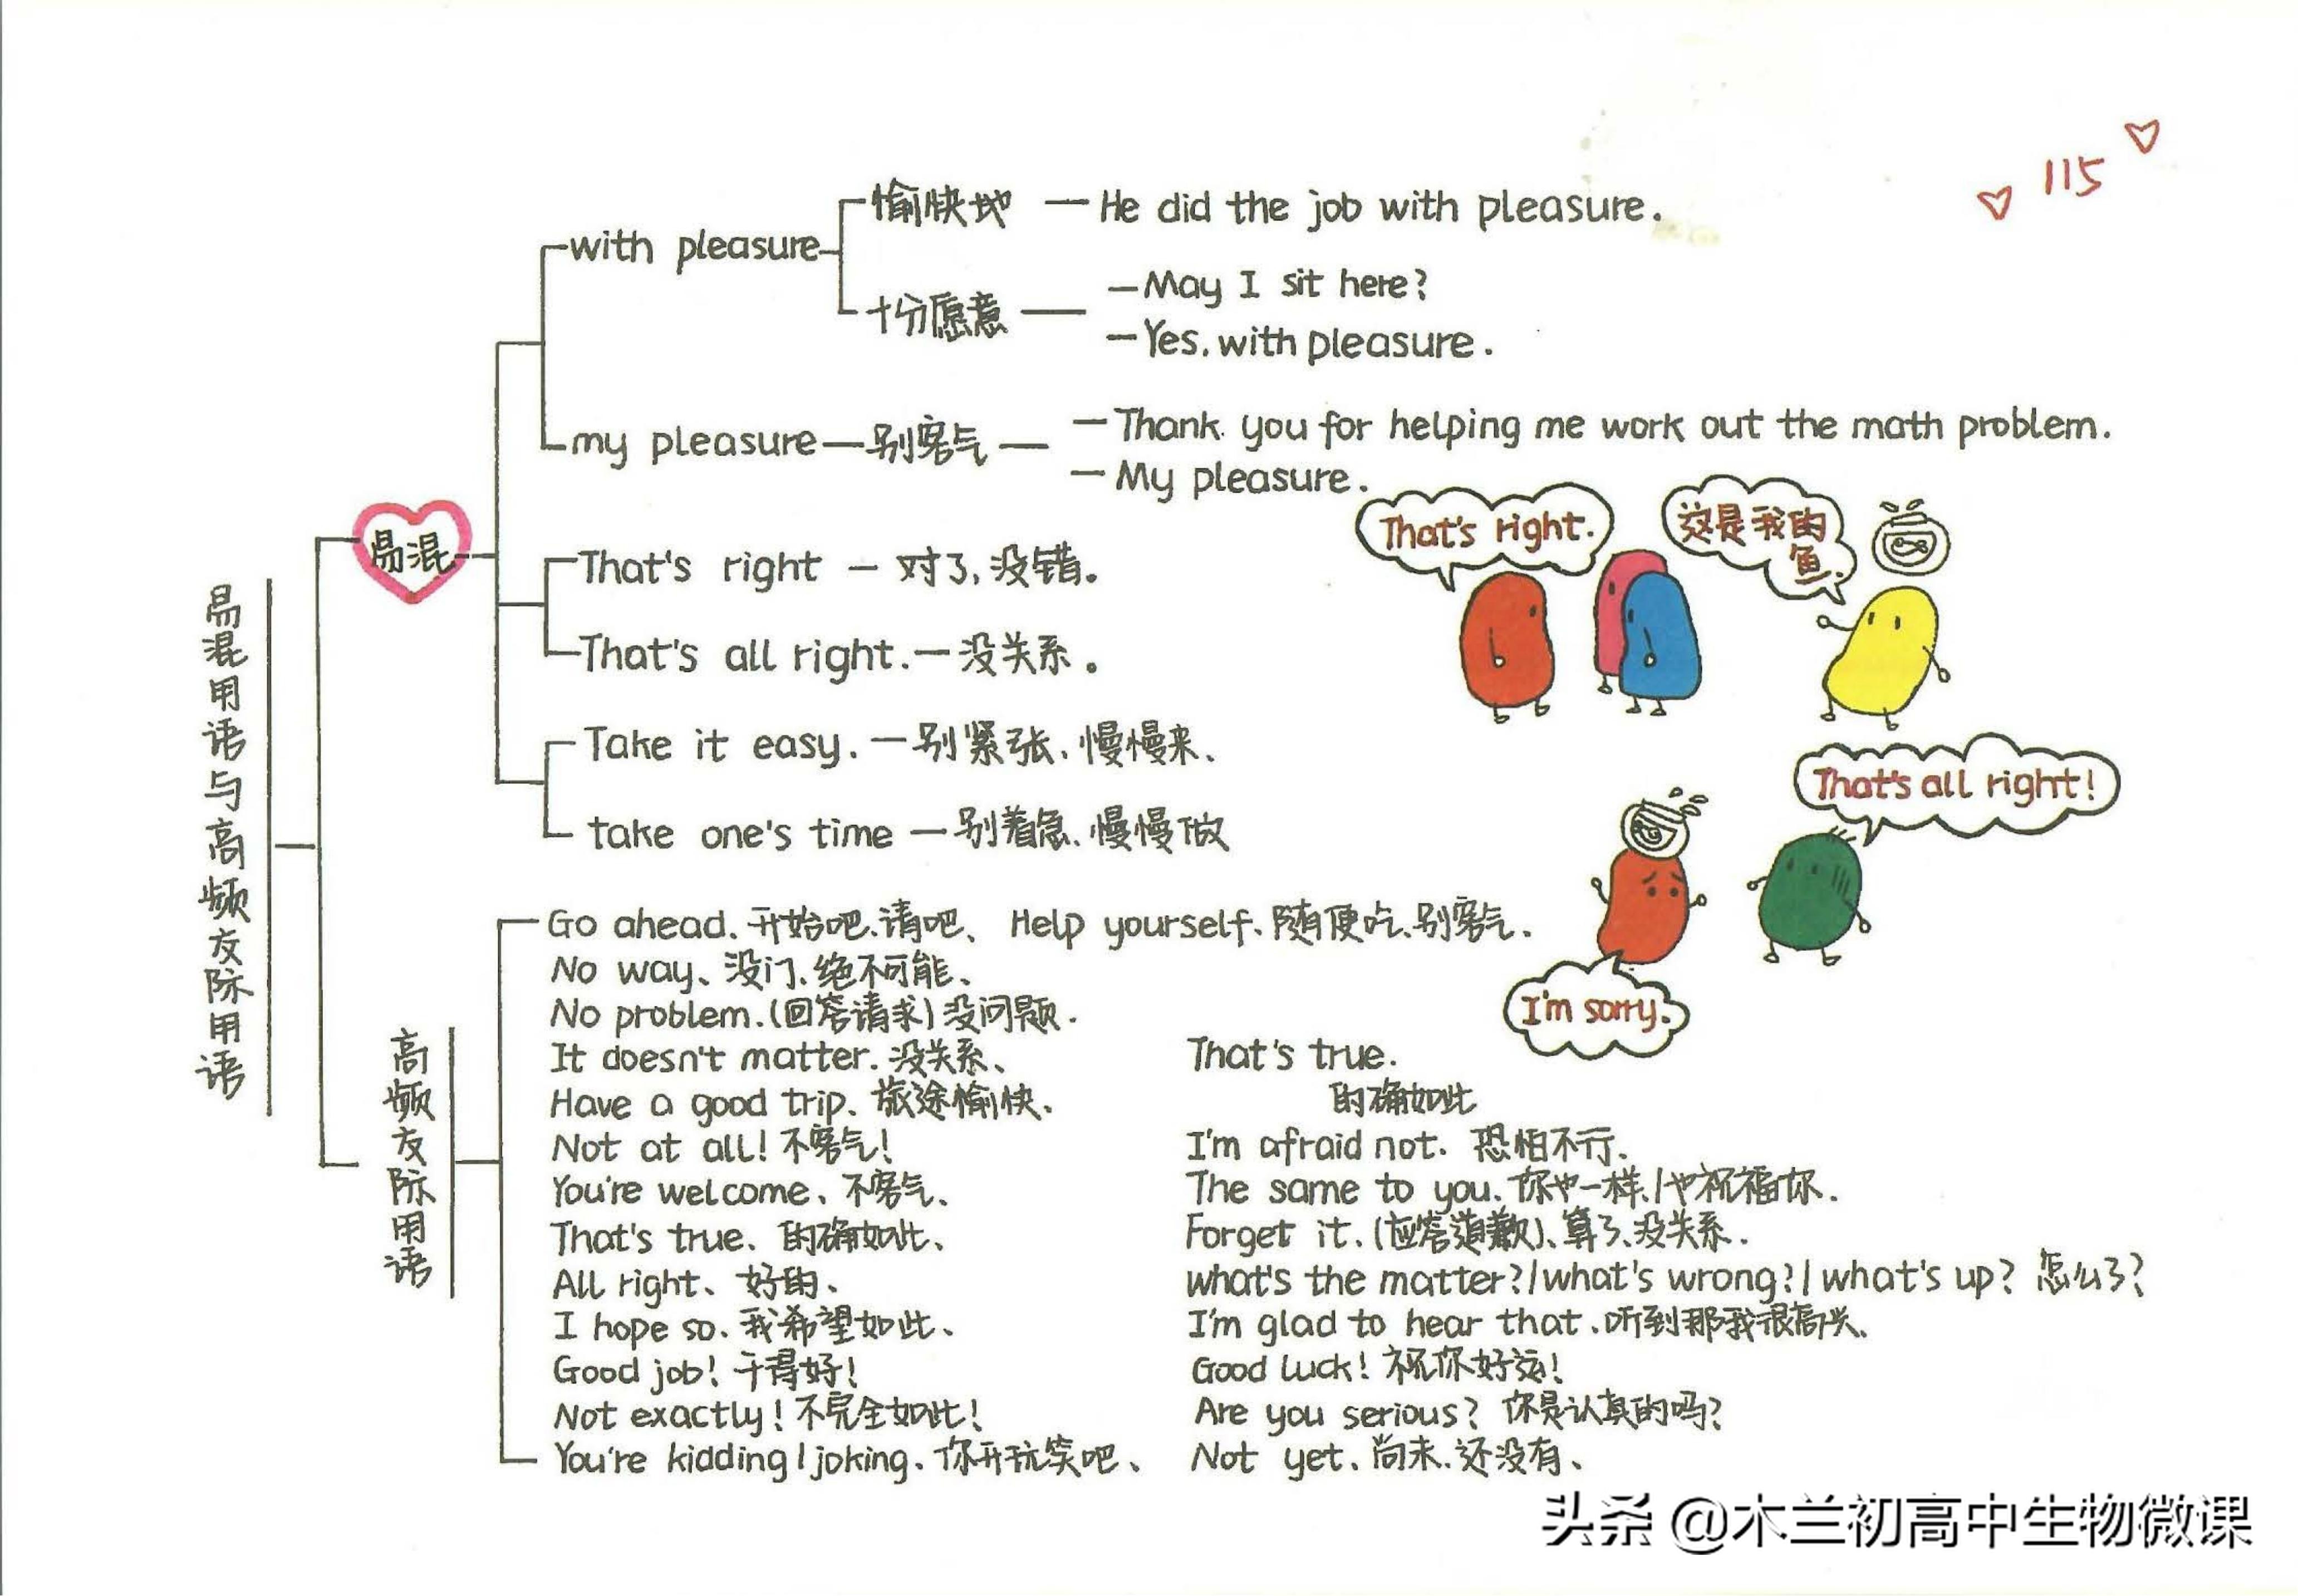 115
易混用语与高频交际用语
易混
with pleasure
愉快地 — He did the job with pleasure.
十分愿意 — —May I sit here?
—Yes, with pleasure.
my pleasure — 别客气 — —Thank you for helping me work out the math problem.
—My pleasure.
That's right — 对了,没错。
That's all right. — 没关系。
Take it easy. — 别紧张、慢慢来、
take one's time — 别着急、慢慢做
That's right.
这是我的
鱼.
That's all right!
I'm sorry.
高频交际用语
Go ahead. 开始吧、请吧、 Help yourself、随便吃、别客气.
No way、没门、绝不可能、
No problem.(回答请求)没问题.
It doesn't matter. 没关系、
Have a good trip、旅途愉快、
Not at all! 不客气!
You're welcome、不客气、
That's true、的确如此、
All right、好的、
I hope so、我希望如此、
Good job! 干得好!
Not exactly! 不完全如此!
You're kidding/joking、你开玩笑吧、
That's true.
的确如此
I'm afraid not. 恐怕不行.
The same to you. 你也一样、/也祝福你.
Forget it、(应答道歉)、算了、没关系.
what's the matter?/what's wrong?/what's up? 怎么了?
I'm glad to hear that.听到那我很高兴、
Good luck! 祝你好运!
Are you serious? 你是认真的吗?
Not yet、尚未、还没有、
头条 @木兰初高中生物微课